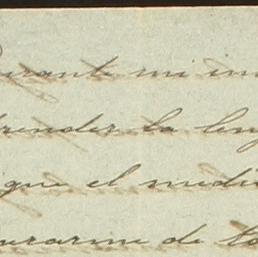 durante mi
prender la leng
que el medi
urarme de to